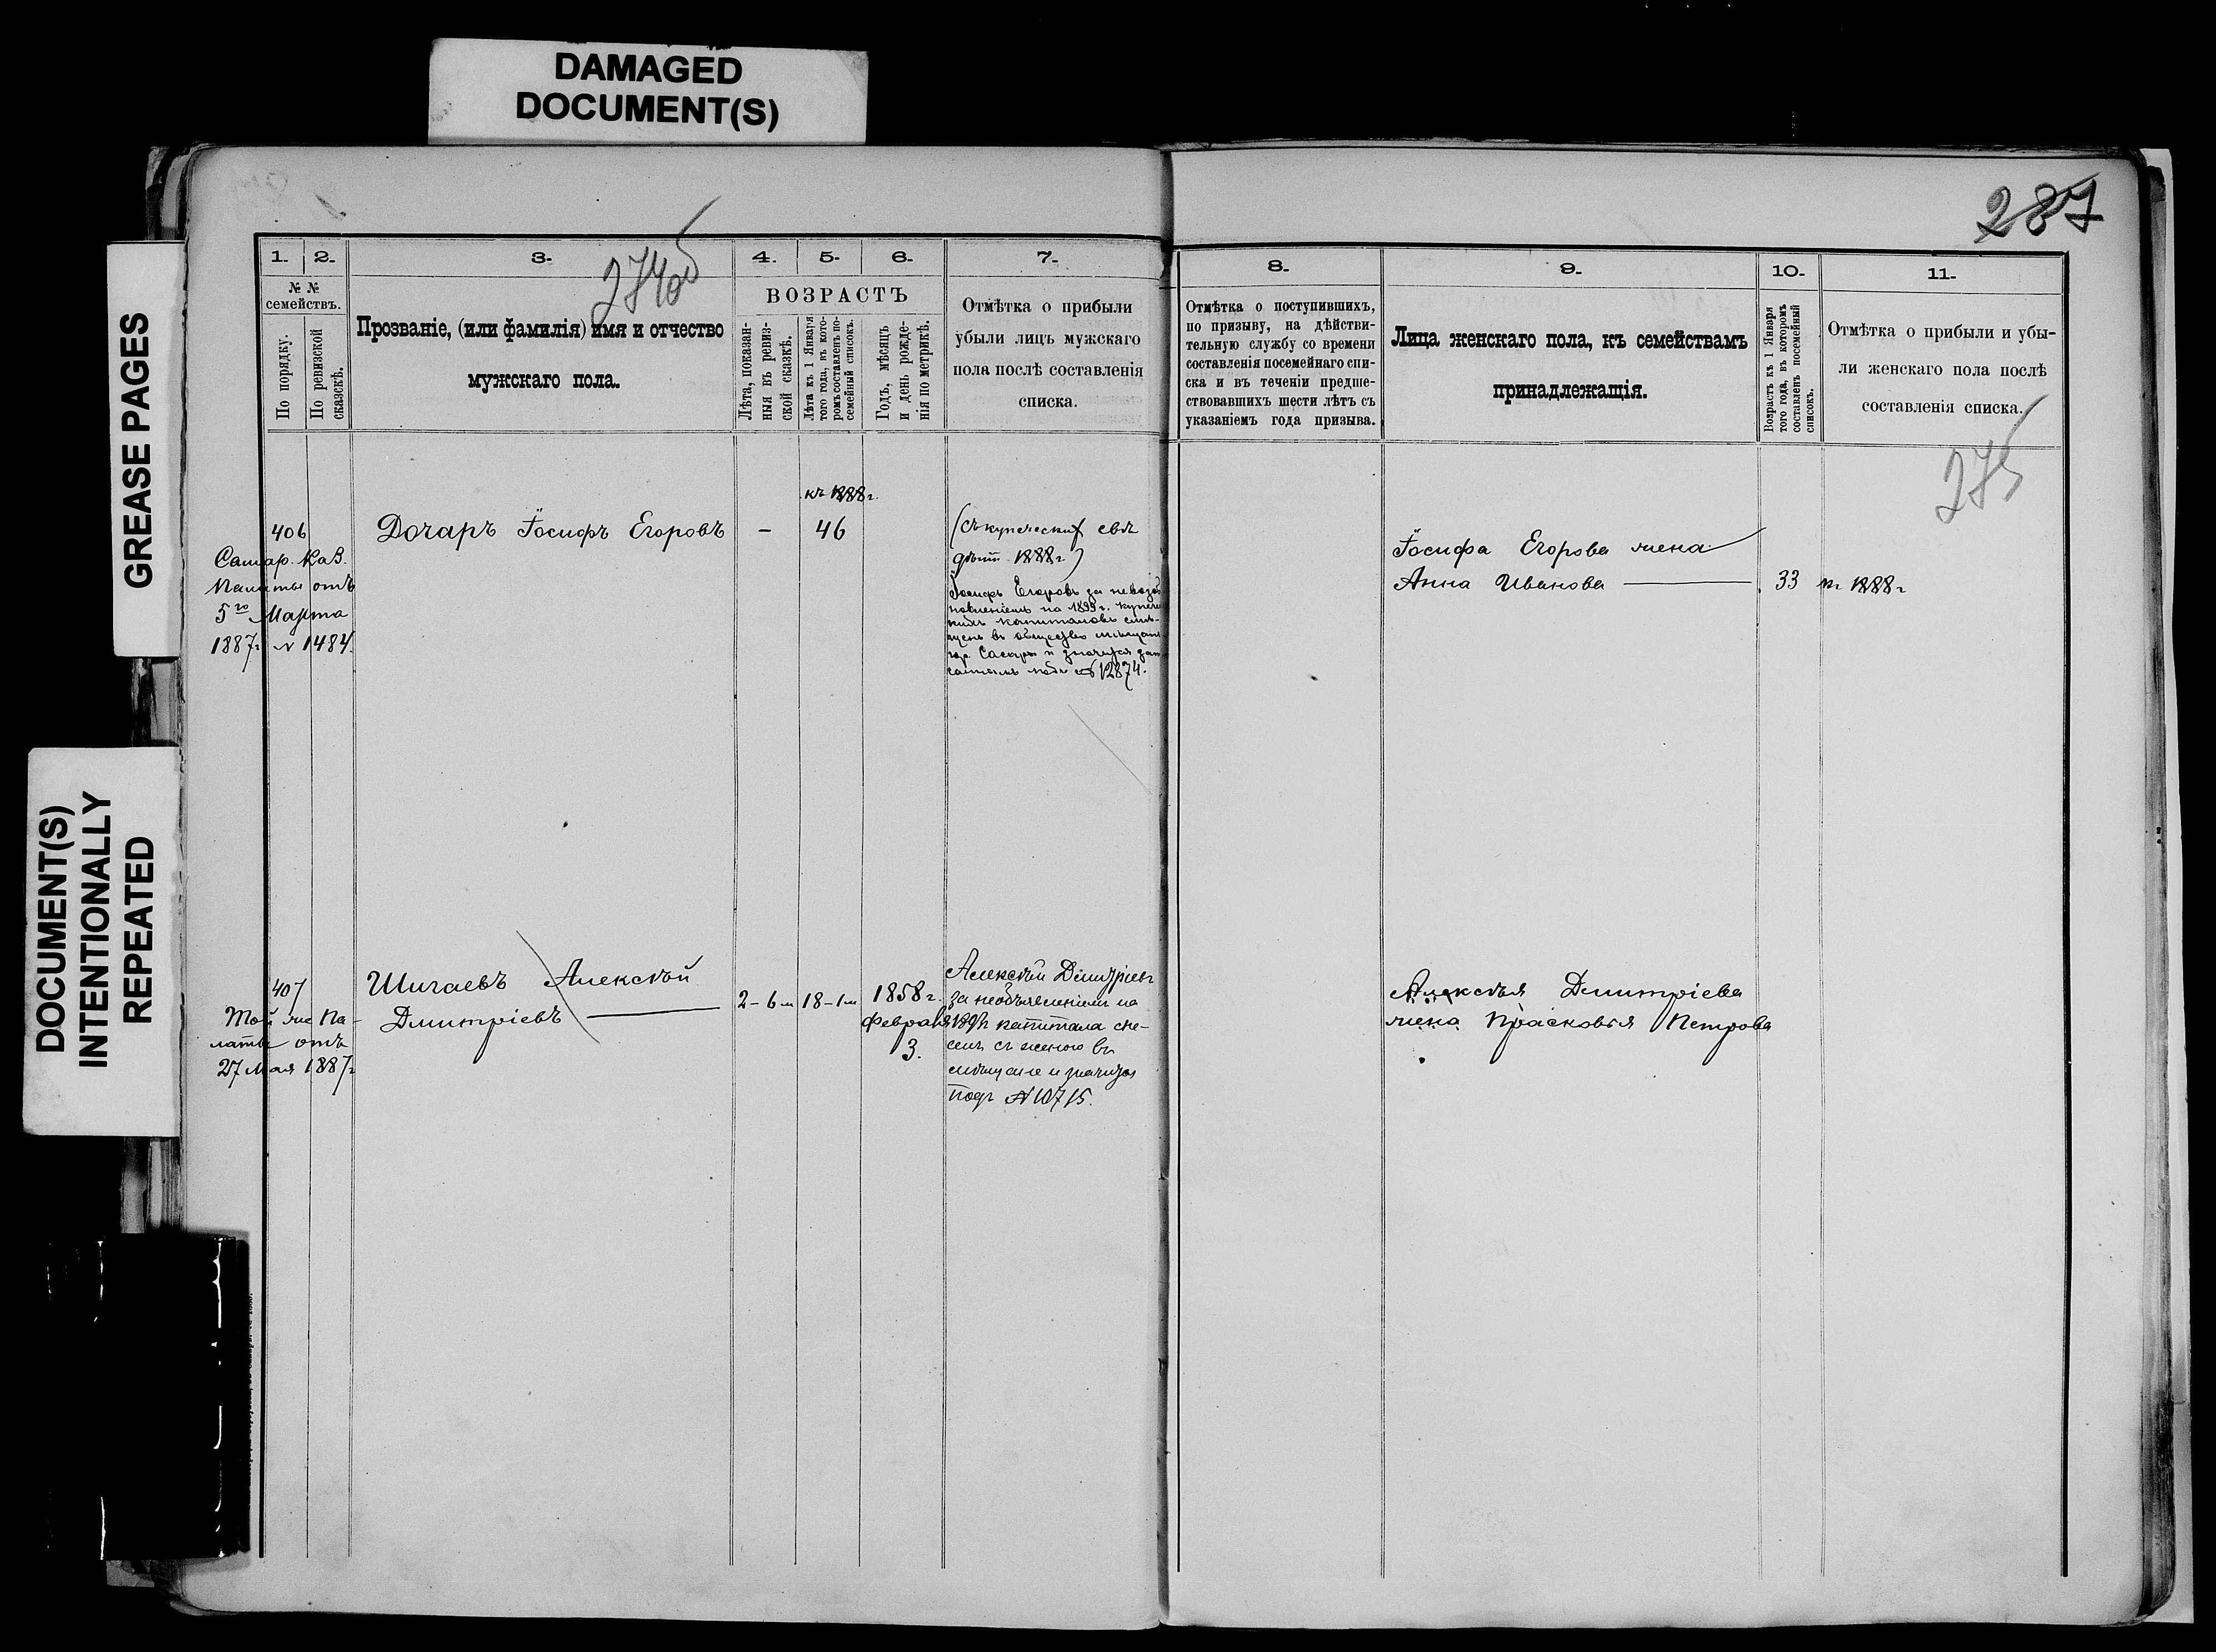 DAMAGED
DOCUMENT(S)
GREASE PAGES
DOCUMENT(S)
INTENTIONALLY
REPEATED
287
274об
1. 2. 3. 4. 5. 6. 7.
№ №
семействъ.
По порядку.
По ревизской
сказскѣ.
Прозваніе, (или фамилія) имя и отчество
мужскаго пола.
ВОЗРАСТЪ
Лѣта, показан-
ныя въ ревиз-
ской сказкѣ.
Лѣта къ 1 Января
того года, въ кото-
ромъ составленъ по-
семейный списокъ.
Годъ, мѣсяцъ
и день рожде-
нія по метрикѣ.
Отмѣтка о прибыли
убыли лицъ мужскаго
пола послѣ составленія
списка.
8. 9. 10. 11.
Отмѣтка о поступившихъ,
по призыву, на дѣйстви-
тельную службу со времени
составленія посемейнаго спи-
ска и въ теченіи предше-
ствовавшихъ шести лѣтъ съ
указаніемъ года призыва.
Лица женскаго пола, къ семействамъ
принадлежащія.
Возрастъ къ 1 Января
того года, въ которомъ
составленъ посемейный
списокъ.
Отмѣтка о прибыли и убы-
ли женскаго пола послѣ
составленія списка.
275
406
Самар. Каз.
Палаты отъ
5го Марта
1887г. № 1484.
Дочаръ Іосифъ Егоровъ
—
къ 1888г.
46
(съ купеческих свѣ
дѣт. 1888г)
Іосифъ Егоровъ за невозоб
новленіемъ на 1899г. купече
общество мѣщанъ
гор. Самары и значится запи
12874.
Іосифа Егорова жена
Анна Иванова
33 къ 1888г
407
Той же Па-
латы отъ
27 Мая 1887г
Шигаевъ Алексѣй
Дмитріевъ
2-6м
18-1м
1858г.
Февраля
3.
Алексѣй Дмитріевъ
за необъявленіемъ на
капитала спи-
сенъ съ женою въ
мѣщане и значится
подъ №10715.
Алексѣя Дмитріева
жена Прасковья Петрова